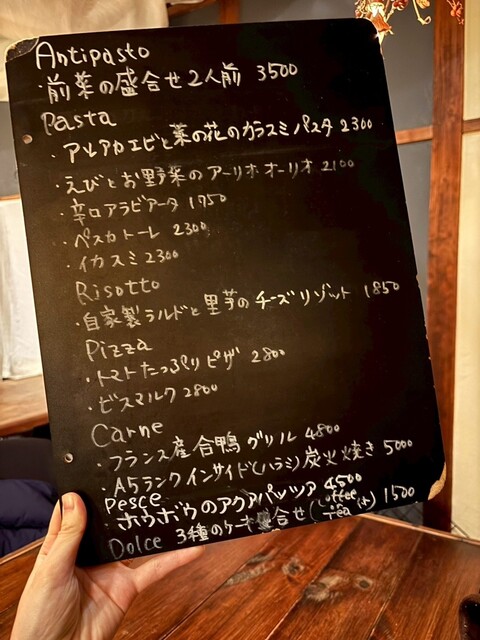 Antipasto
・前菜の盛合せ2人前 3500
Pasta
・アルアカエビと菜の花のカラスミパスタ 2300
・えびとお野菜のアーリオオーリオ 2100
・辛口アラビアータ 1750
・ペスカトーレ 2300
・イカスミ 2300
Risotto
・自家製ラルドと里芋のチーズリゾット 1850
Pizza
・トマトたっぷりピザ 2800
・ビスマルク 2800
Carne
・フランス産合鴨グリル 4800
・A5ランクインサイド(ハラミ)炭火焼き 5000
Pesce
・ホウボウのアクアパッツア 4500
Dolce 3種のケーキ盛合せ (coffee or tea 付) 1500